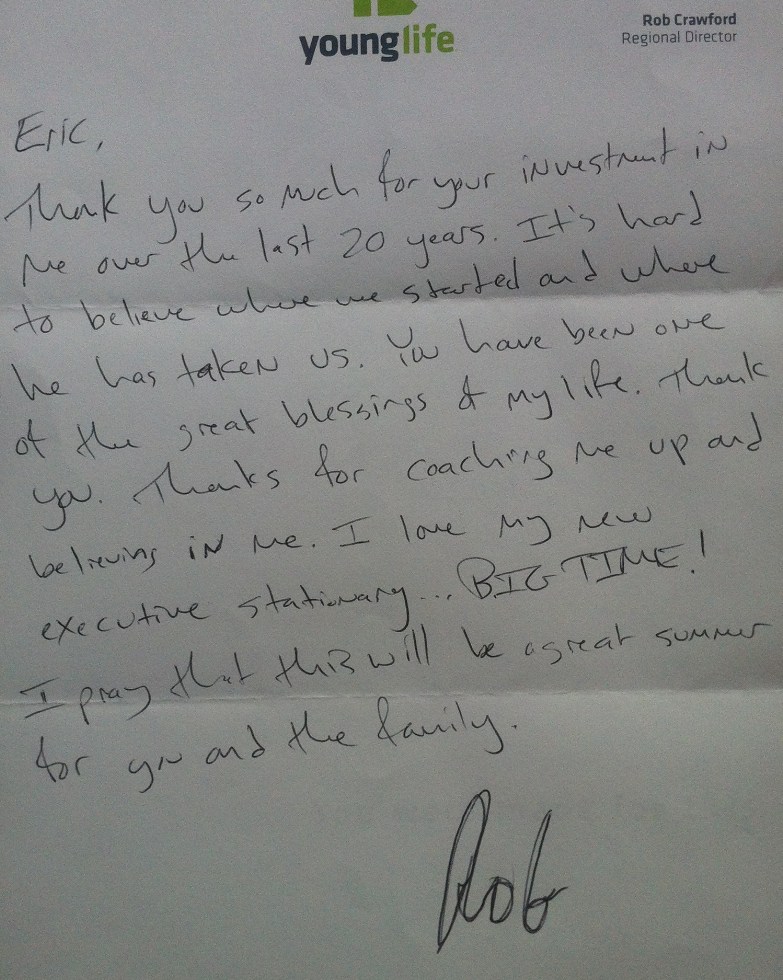 younglife
Rob Crawford
Regional Director
Eric,
Thank you so much for your investment in
me over the last 20 years. It's hard
to believe where we started and where
he has taken us. You have been one
of the great blessings of my life. Thank
you. Thanks for coaching me up and
believing in me. I love my new
executive stationary... BIG TIME!
I pray that this will be a great summer
for you and the family.
Rob